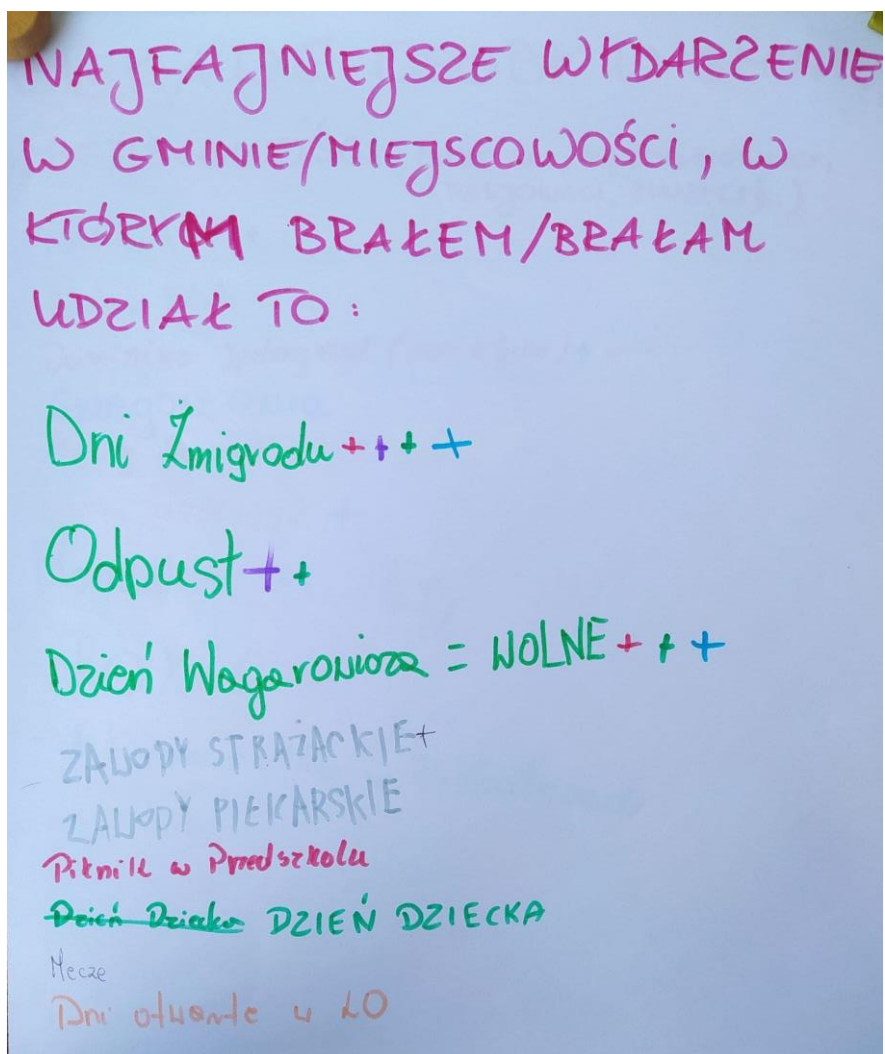 NAJFAJNIEJSZE WYDARZENIE
W GMINIE/MIEJSCOWOŚCI, W
KTÓRYM BRAŁEM/BRAŁAM
UDZIAŁ TO:
Dni Żmigrodu + + + +
Odpust + +
Dzień Wagarowicza = WOLNE + + +
ZAWODY STRAŻACKIE +
ZAWODY PIŁKARSKIE
Piknik w Przedszkolu
Dzień Dziecka DZIEŃ DZIECKA
Mecze
Dni otwarte w LO